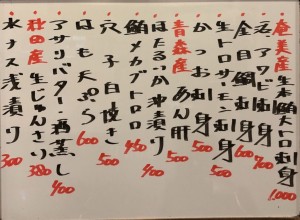 奄美産 生本鮪大トロ刺身 1,000
活アワビ刺身 700
金目鯛刺身 600
生トロサーモン刺身 500
かつお刺身 500
青森産 あん肝 500
ほたるいか沖漬り 400
鮪メカブトロ 450
穴子白焼き 500
はも天ぷら 600
アサリバター・酒蒸し 400
秋田産 生じゅんさい 380
水ナス浅漬り 300